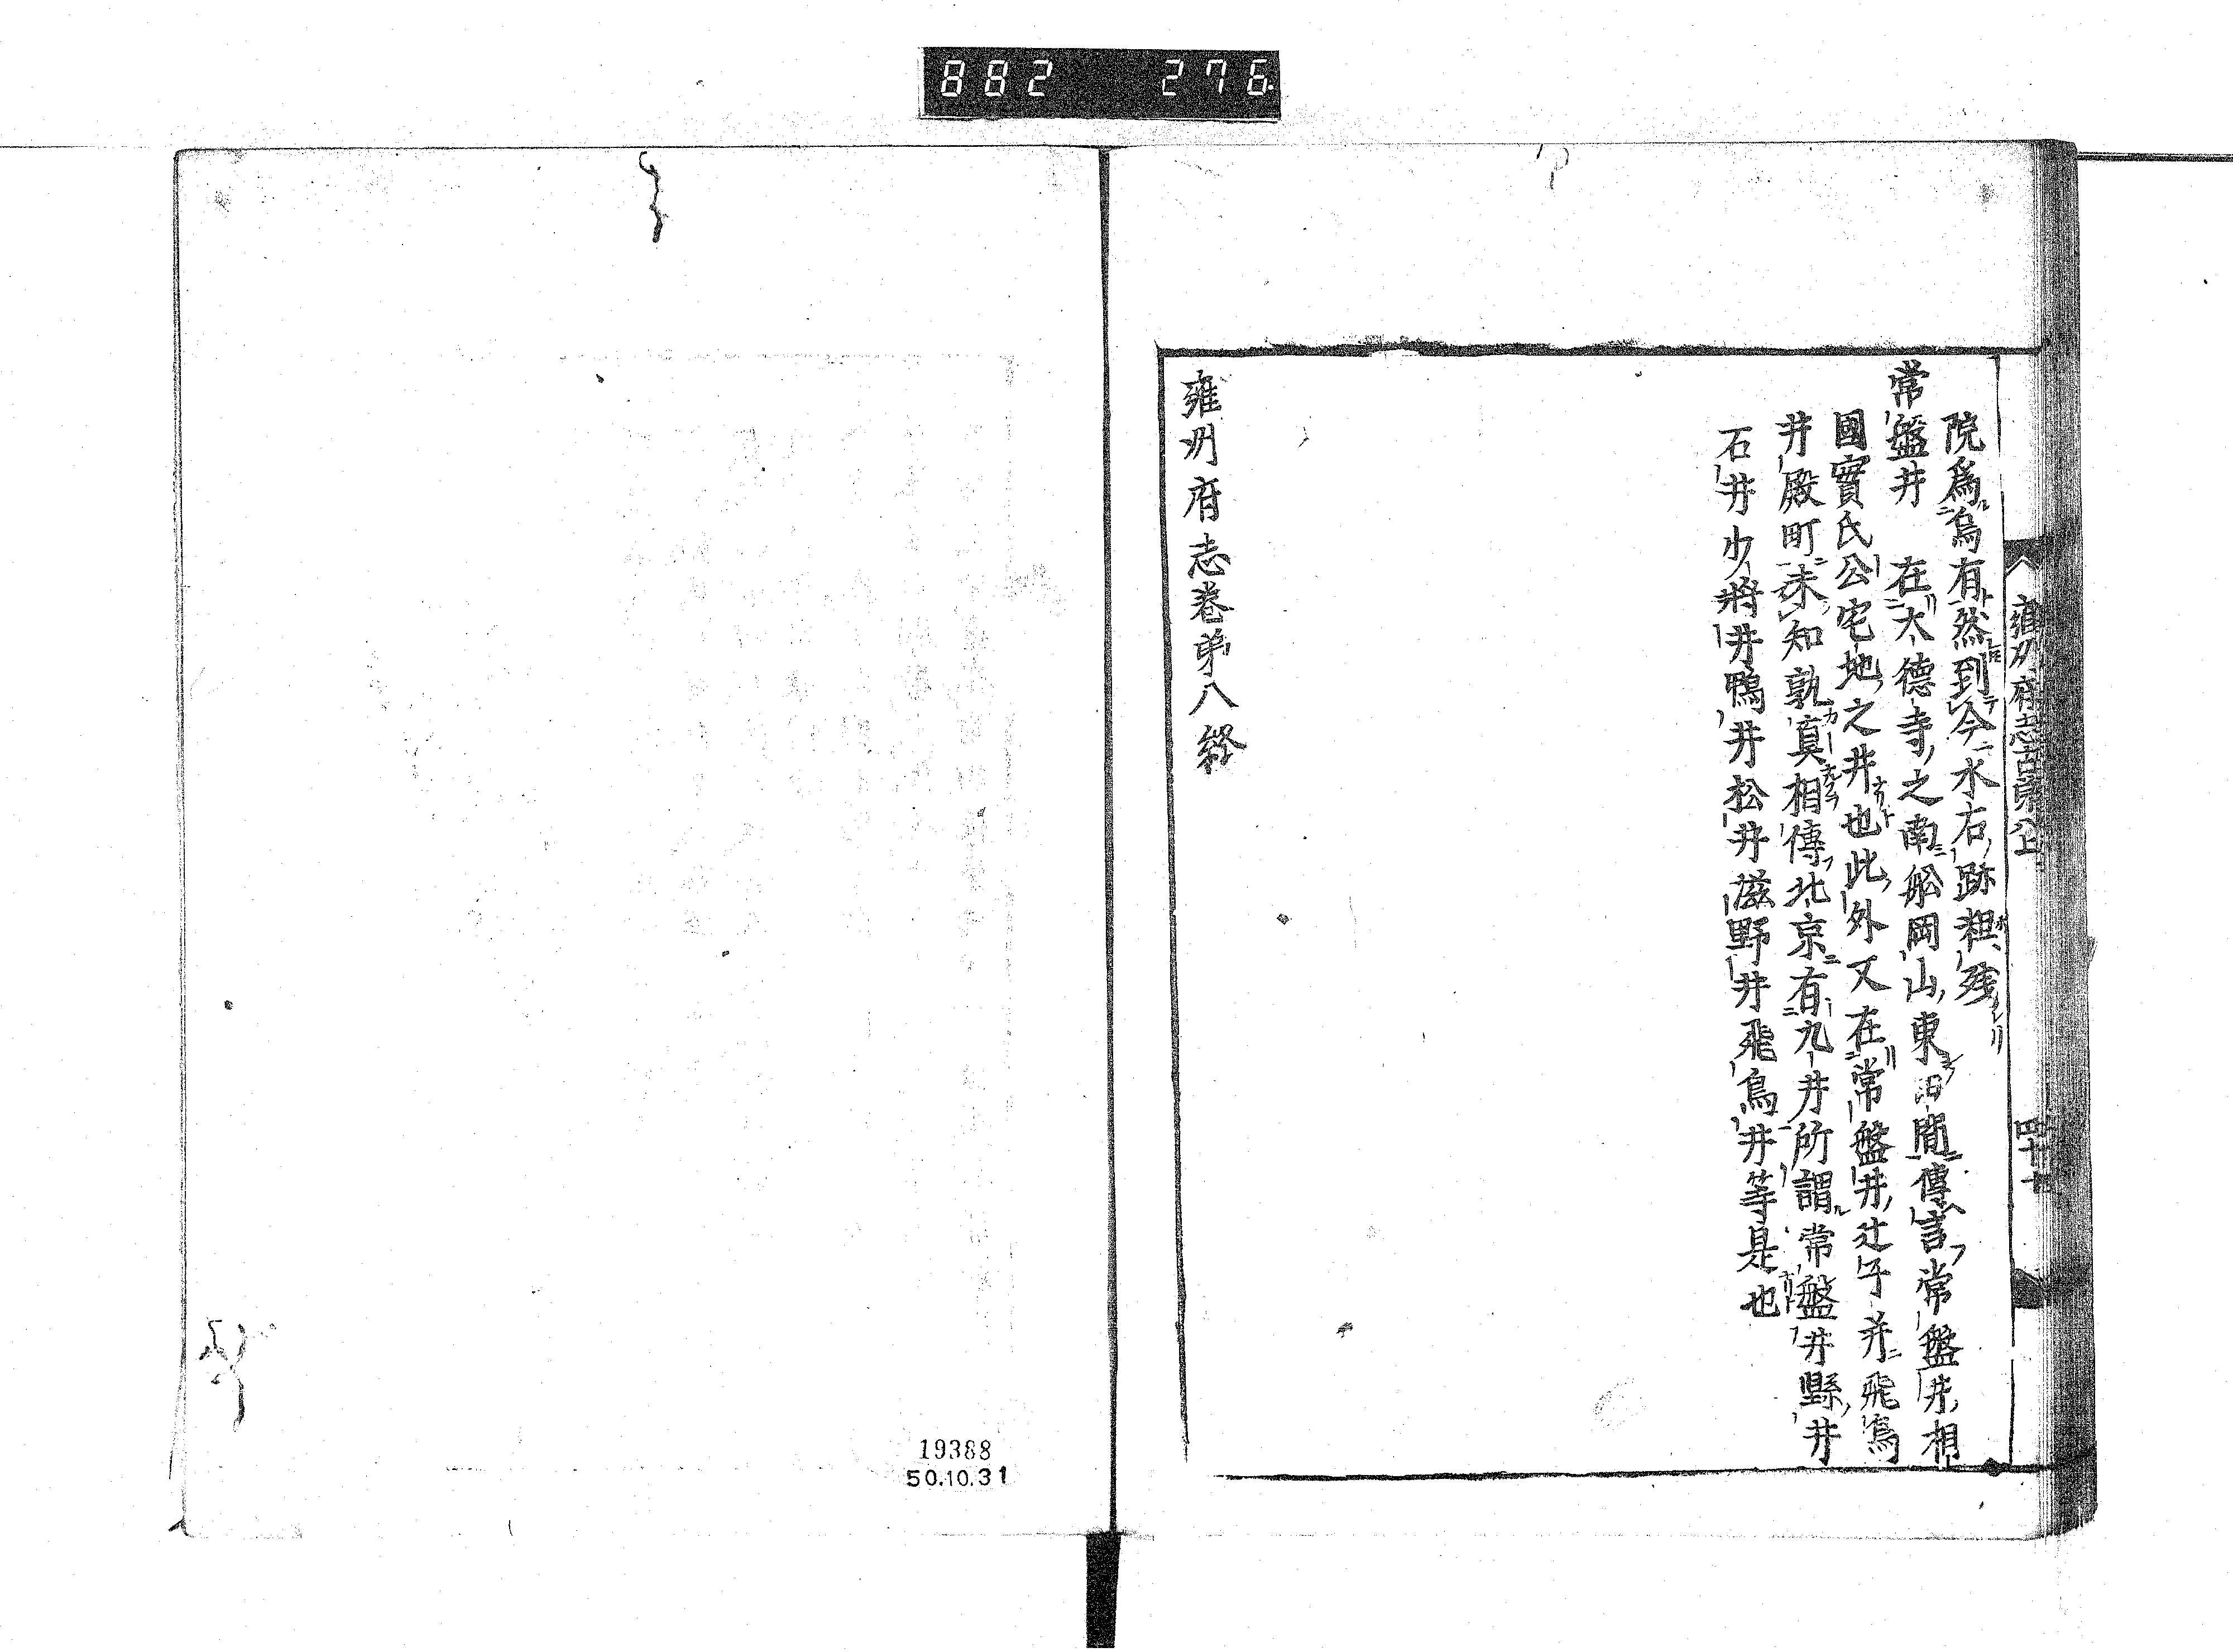 882 276
雍州府志古蹟八上
四十七
院爲烏有然到今水石跡粗残
常盤井 在大德寺之南舩岡山東田間傳言常盤井相
國實氏公宅地之井也此外又在常盤井辻子并飛鳥
井殿町未知孰真相傳北京有九井所謂常盤井縣井
石井少將井鴨井松井滋野井飛鳥井等是也
雍州府志卷第八終
19388
50.10.31